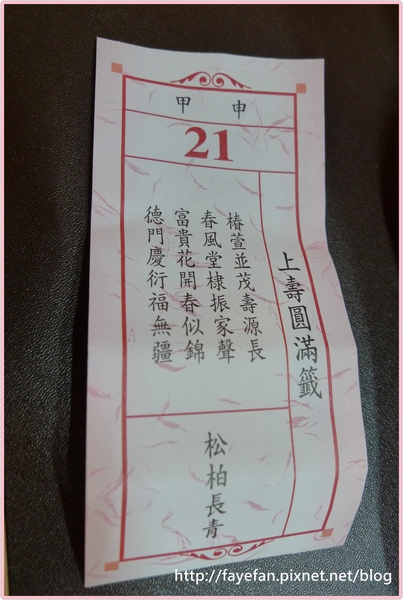 甲申
21
上壽圓滿籤
椿萱並茂壽源長
春風堂棣振家聲
富貴花開春似錦
德門慶衍福無疆
松柏長青
http://fayefan.pixnet.net/blog